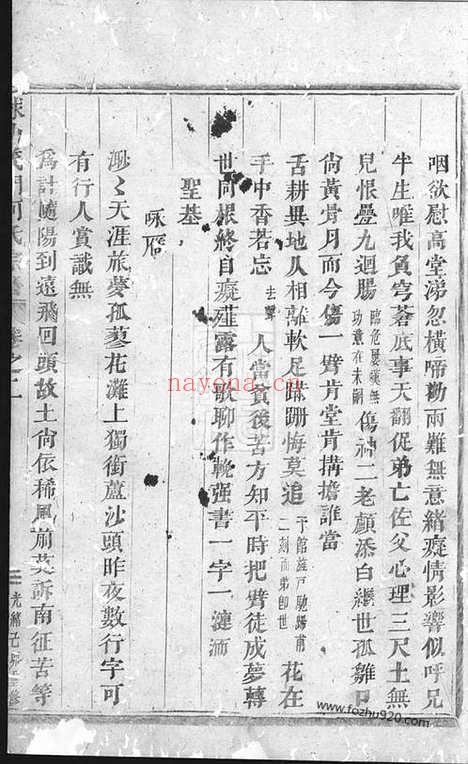 咽欲慰高堂涕忽橫啼勸兩難無意緒癡情影響似呼兄
半生唯我負穹蒼底事天翻促弟亡佐父心理三尺土無
兒恨疊九迴腸 臨危屢獲無功意在未嗣 傷神二老顏添白繼世孤雛
尙黃骨月而今傷一臂肯堂肯搆擔誰當
舌耕異地久相離軟足蹣跚悔莫追 館 戸馳歸甫二刻而弟卽世 花在
手中香若忘 去聲 人當貧後苦方知平時把臂徒成夢轉
世同根終自癡薤露有歌聊作輓强書一字一漣洏
聖基
咏雁
渺々天涯旅夢孤蓼花灘上獨銜蘆沙頭昨夜數行字可
有行人賞識無
爲計隨陽到遠飛回頭故土尙依稀風前莫訴南征苦等
氏宗譜 卷之二
二 光緒
nayona.cn
www.fozhu920.com